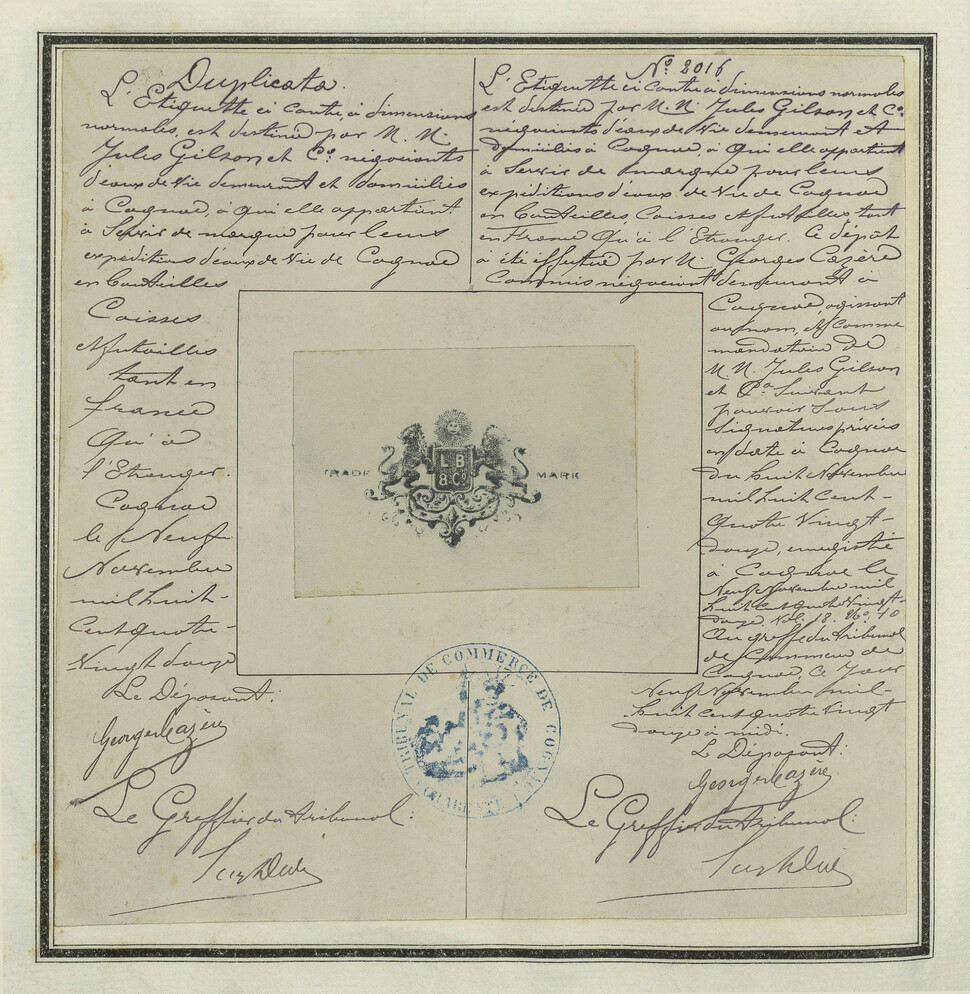 Duplicata.
L'Etiquette ci contre, à dimensions
normales, est destinée par M. M.
Jules Gilson et Cº négociants
d'eaux de Vie demeurant et domiciliés
à Cognac, à qui elle appartient
à Servir de marque pour leurs
expéditions d'eaux de Vie de Cognac
en Bouteilles
Caisses
et futailles
tant en
france
Qu'à
l'Etranger.
Cognac
le Neuf
Novembre
mil huit-
Cent quatre-
Vingt douze
Le Déposant:
Georges Cazère
Le Greffier du tribunal:
Nº 2016
L'Etiquette ci Contre, à dimensions normales
est destinée par M. M. Jules Gilson et Cº
négociants d'eaux de Vie demeurant et
domiciliés à Cognac, à Qui elle appartient
à Servir de marque pour leurs
expéditions d'eaux de Vie de Cognac
en Bouteilles, Caisses et futailles, tant
en France Qu'à l'Etranger. Ce dépôt
a été effectué par M. Georges Cazère
Commis négociant demeurant à
Cognac, agissant
au nom, et Comme
mandataire de
M. M. Jules Gilson
et Cº Suivant
pouvoir Sous
Signatures privées
en date à Cognac
du huit Novembre
mil huit Cent-
Quatre Vingt-
douze, enregistré
à Cognac le
Neuf Novembre mil
huit Cent quatre Vingt-
douze Vol. 18. Nº 10
Au greffe du tribunal
de Commerce de
Cognac, Ce Jour
Neuf Novembre mil-
huit cent quatre Vingt
douze à midi.
Le Déposant:
Georges Cazère
Le Greffier du tribunal:
TRADE MARK
L B
& Cº
TRIBUNAL DE COMMERCE DE COGNAC
CHARENTE